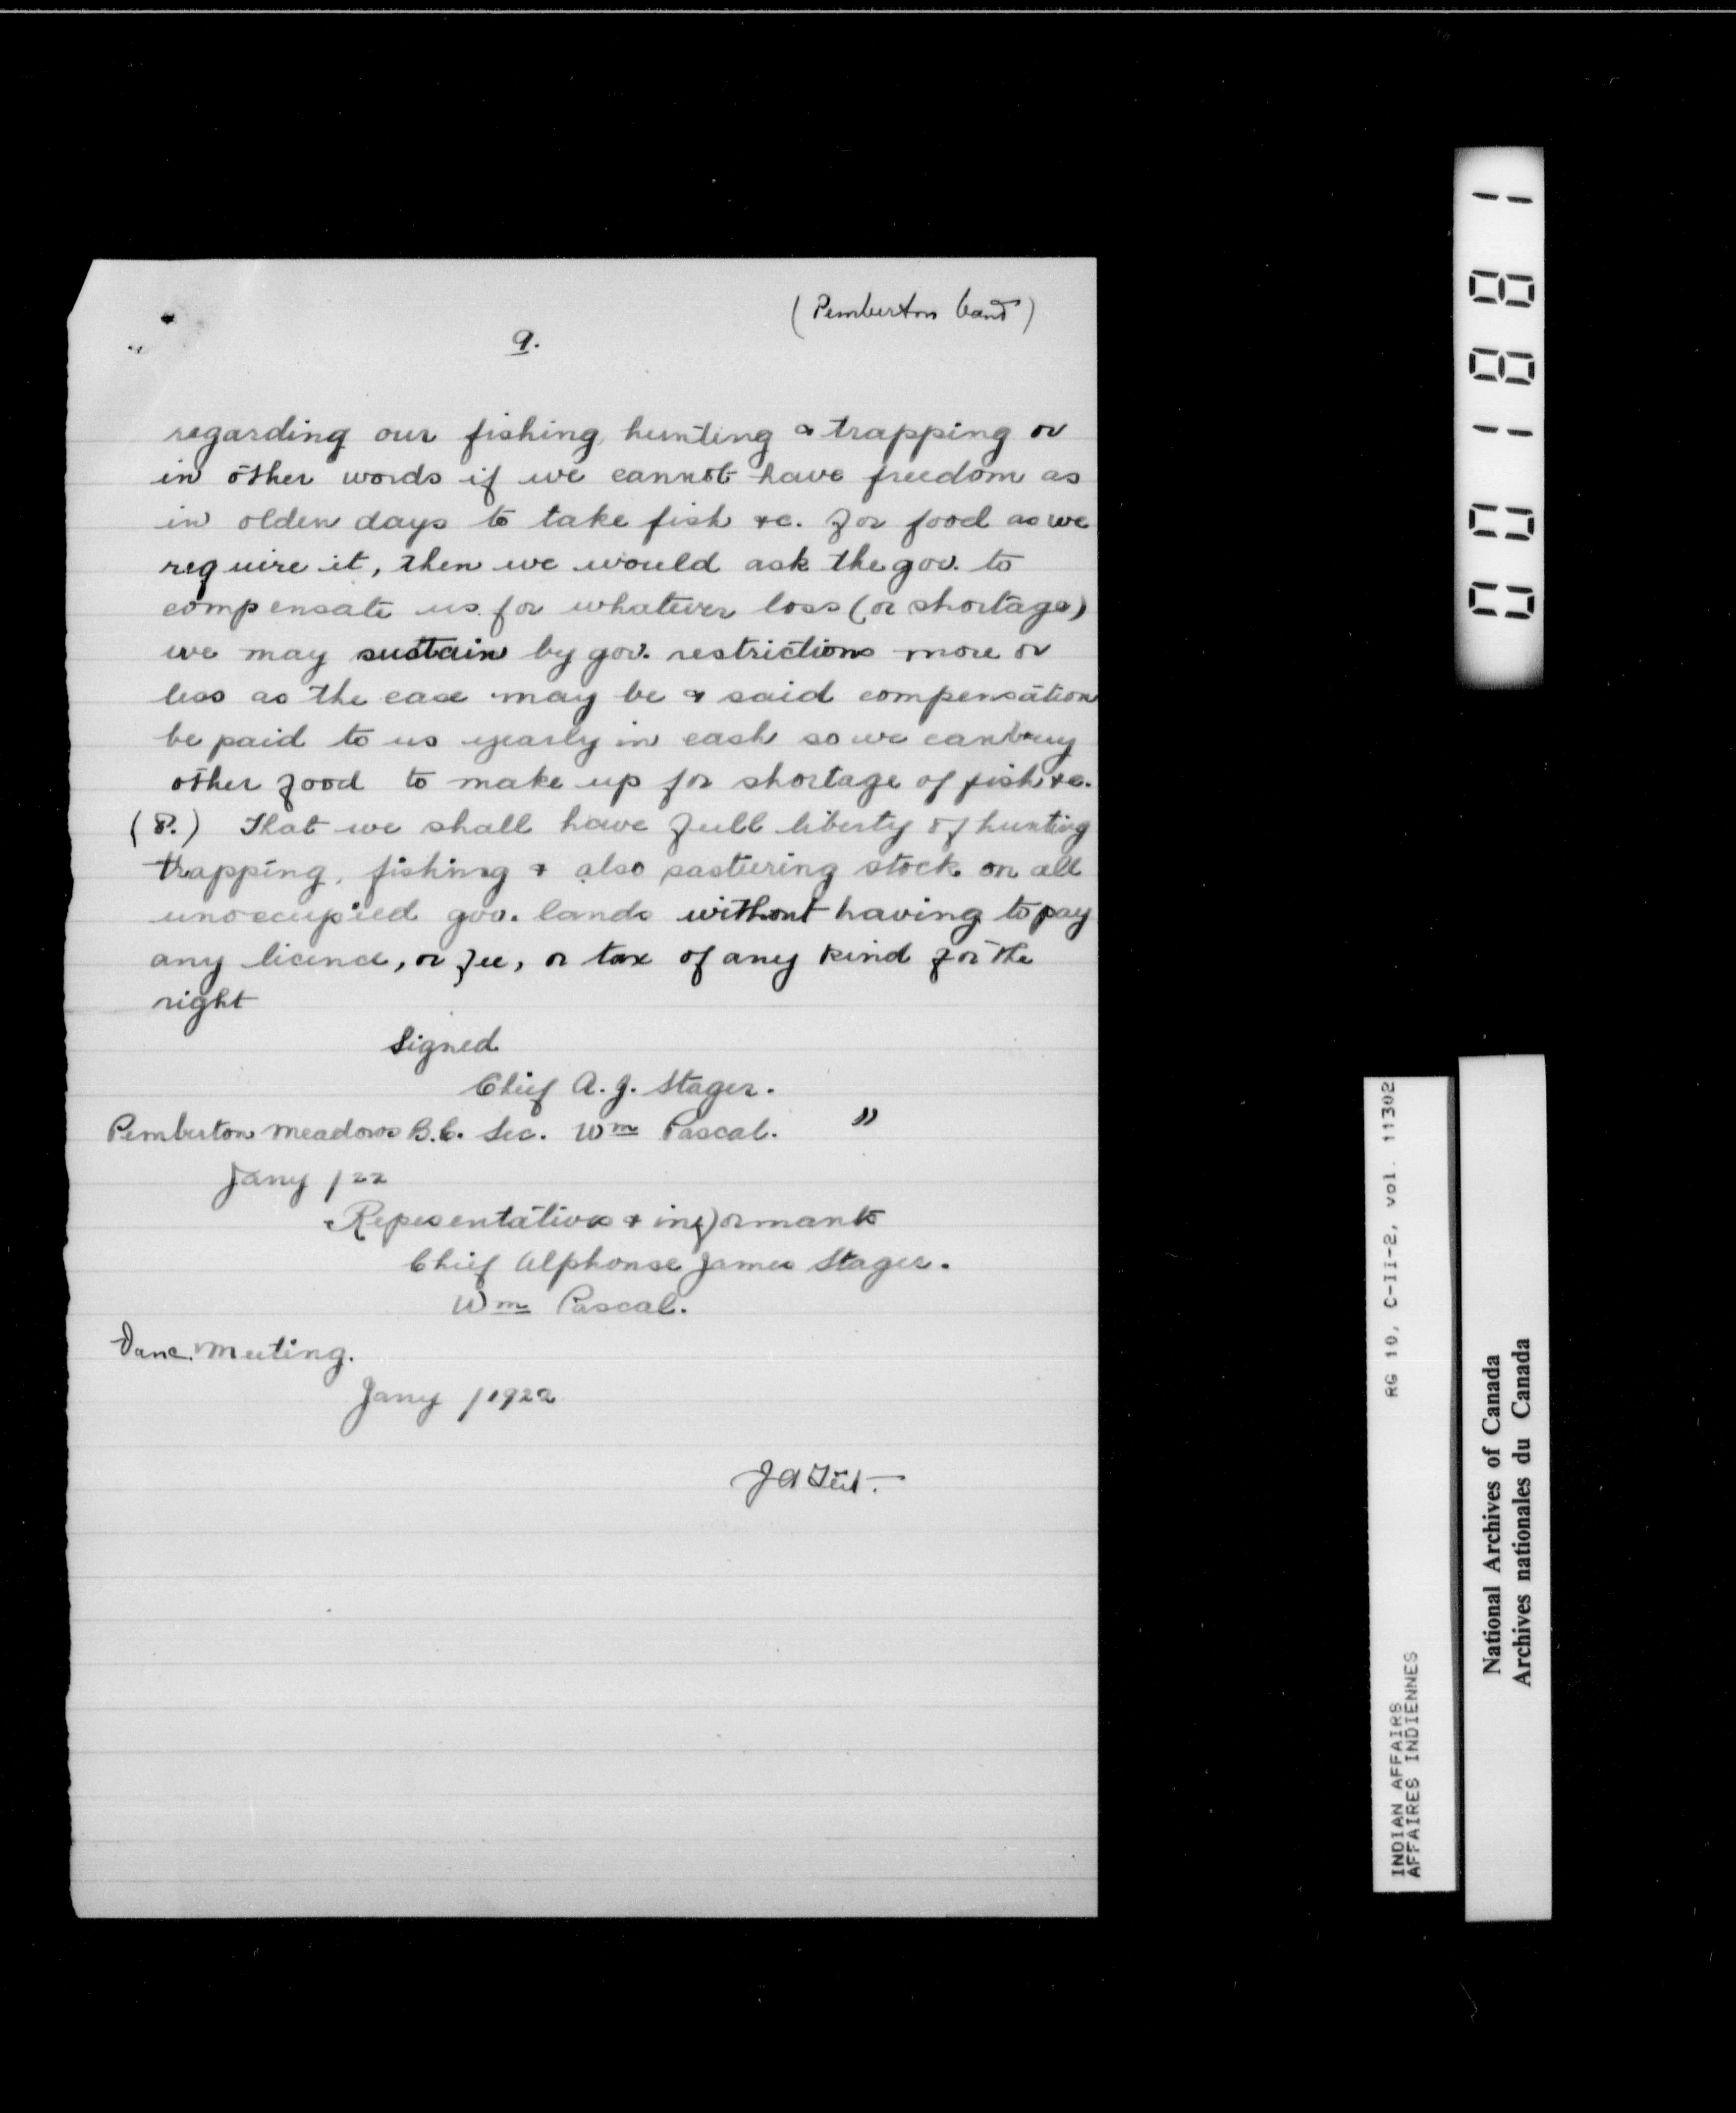 (Pemberton band)
9.
regarding our fishing, hunting & trapping or
in other words if we cannot have freedom as
in olden days to take fish &c. for food as we
require it, then we would ask the gov. to
compensate us for whatever loss (or shortage)
we may sustain by gov. restrictions more or
less as the case may be & said compensation
be paid to us yearly in cash so we can buy
other food to make up for shortage of fish &c.
(8.) That we shall have full liberty of hunting
trapping, fishing & also pasturing stock on all
unoccupied gov. lands without having to pay
any licence, or fee, or tax of any kind for the
right
Signed
Chief A. J. Stager.
Pemberton Meadows B.C. Sec. Wm Pascal. "
Jany / 22
Representatives & informants
Chief Alphonse James Stager.
Wm Pascal.
Vanc. Meeting.
Jany / 1922
J A Teit.
001881
RG 10, C-II-2, vol. 11302
INDIAN AFFAIRS
AFFAIRES INDIENNES
National Archives of Canada
Archives nationales du Canada